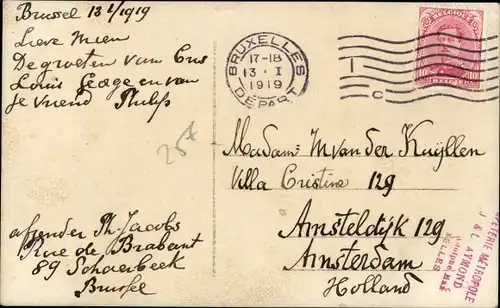 Brussel 13 1/1919
Lieve Mien
De groeten van Ons
Louis George en van
je vriend Philip
BRUXELLES
17-18
13 · I
1919
DÉPART
I
C
BELGIQUE
10 10
BELGIË
25x
Madam: M van der Kuyllen
Villa Cristine 129
Amsteldijk 129
Amsterdam
Holland
afzender Ph. Jacobs
Rue de Brabant
89 Schaerbeek
Brussel
METROPOLE
AYMOND